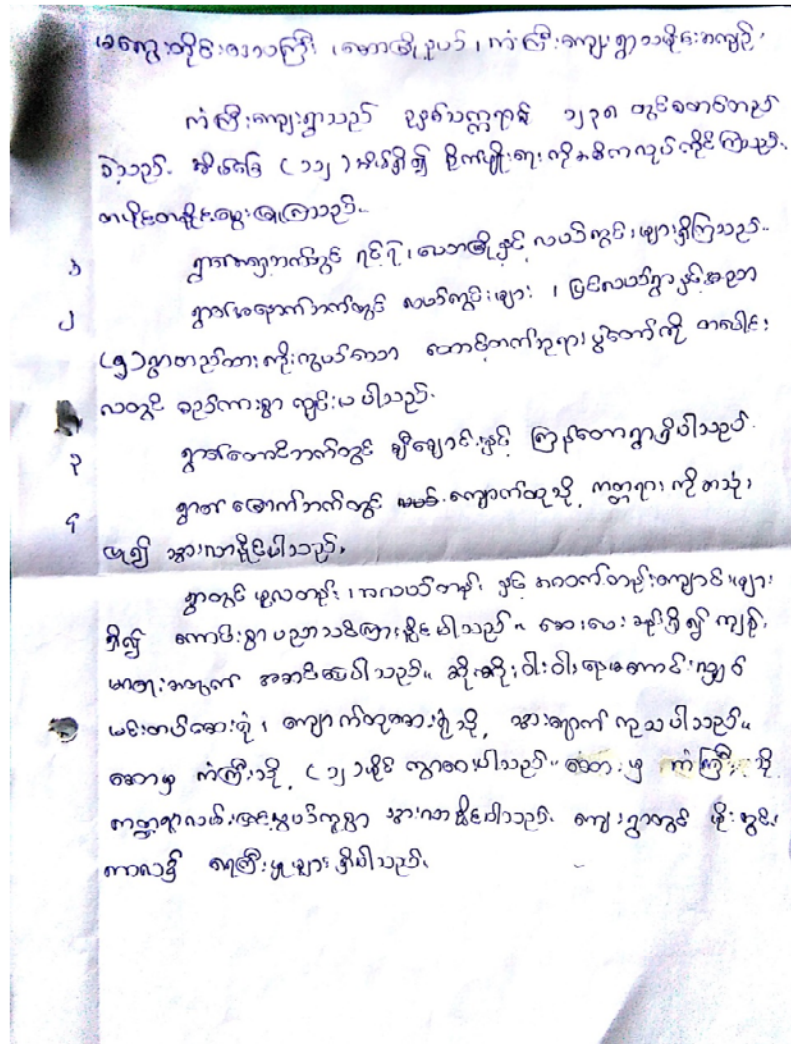 မကွေးတိုင်းဒေသကြီး ၊ ဆောမြို့နယ် ၊ ကံကြီးကျေးရွာသမိုင်းအကျဉ်း
ကံကြီးကျေးရွာသည် ခုနှစ်သက္ကရာဇ် ၁၂၃၈ တွင်စတင်တည်
ခဲ့သည်. အိမ်ခြေ (၁၁၂) အိမ်ရှိ၍ စိုက်ပျိုးရေးကိုအဓိကလုပ်ကိုင်ကြသည်.
တပိုင်တနိုင်မွေးမြူကြသည်.
၁ ရွာ၏အရှေ့ဘက်တွင် နှင့် လယ်ကွင်းများရှိကြသည်.
၂ ရွာ၏အနောက်ဘက်တွင် လယ်ကွင်းများ ၊ မြင်လယ်ရွာနှင့်
(၅)ရွာတည်ထားကိုးကွယ်သော တောင့်တက်ဘုရားပွဲတော်ကို တပေါင်း
လတွင် စည်ကားစွာ ကျင်းပပါသည်.
၃ ရွာ၏တောင်ဘက်တွင် ချောင်းနှင့် ကြာနတောရွာရှိပါသည်.
၄ ရွာ၏မြောက်ဘက်တွင် ကျောက်ထုသို့ ကတ္တရာ ကိုအသုံး
ပြု၍ သွားလာနိုင်ပါသည်.
ရွာတွင် မူလတန်း ၊ အလယ်တန်း နှင့် အထက်တန်းကျောင်းများ
ရှိ၍ ကောင်းစွာပညာသင်ကြားနိုင်ပါသည်။ ဆေးပေးခန်းရှိ၍ ကျန်း
မာရေးအတွက် အဆင်ပြေပါသည်။ ဆိုးဆိုးဝါးဝါးနေမကောင်းလျှင်
မင်းတပ်ဆေးရုံ ၊ ကျောက်ထုဆေးရုံသို့ သွားရောက် ကုသပါသည်။
ဆောမှ ကံကြီးသို့ (၁၂)မိုင် ကွာဝေးပါသည်။ ဆောမှ ကံကြီး သို့
ကတ္တရာလမ်းဖြင့်လွယ်ကူစွာ သွားလာနိုင်ပါသည်. ကျေးရွာတွင် မိုးတွင်း
ကာလ၌ ရေကြီးမှုများ ရှိပါသည်.